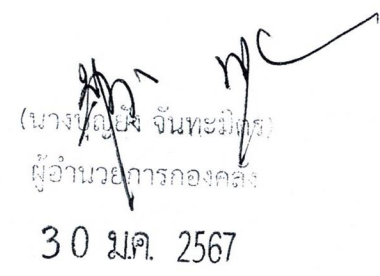 (นางบุญยัง จันทะมิตร)
ผู้อำนวยการกองคลัง
30 ม.ค. 2567